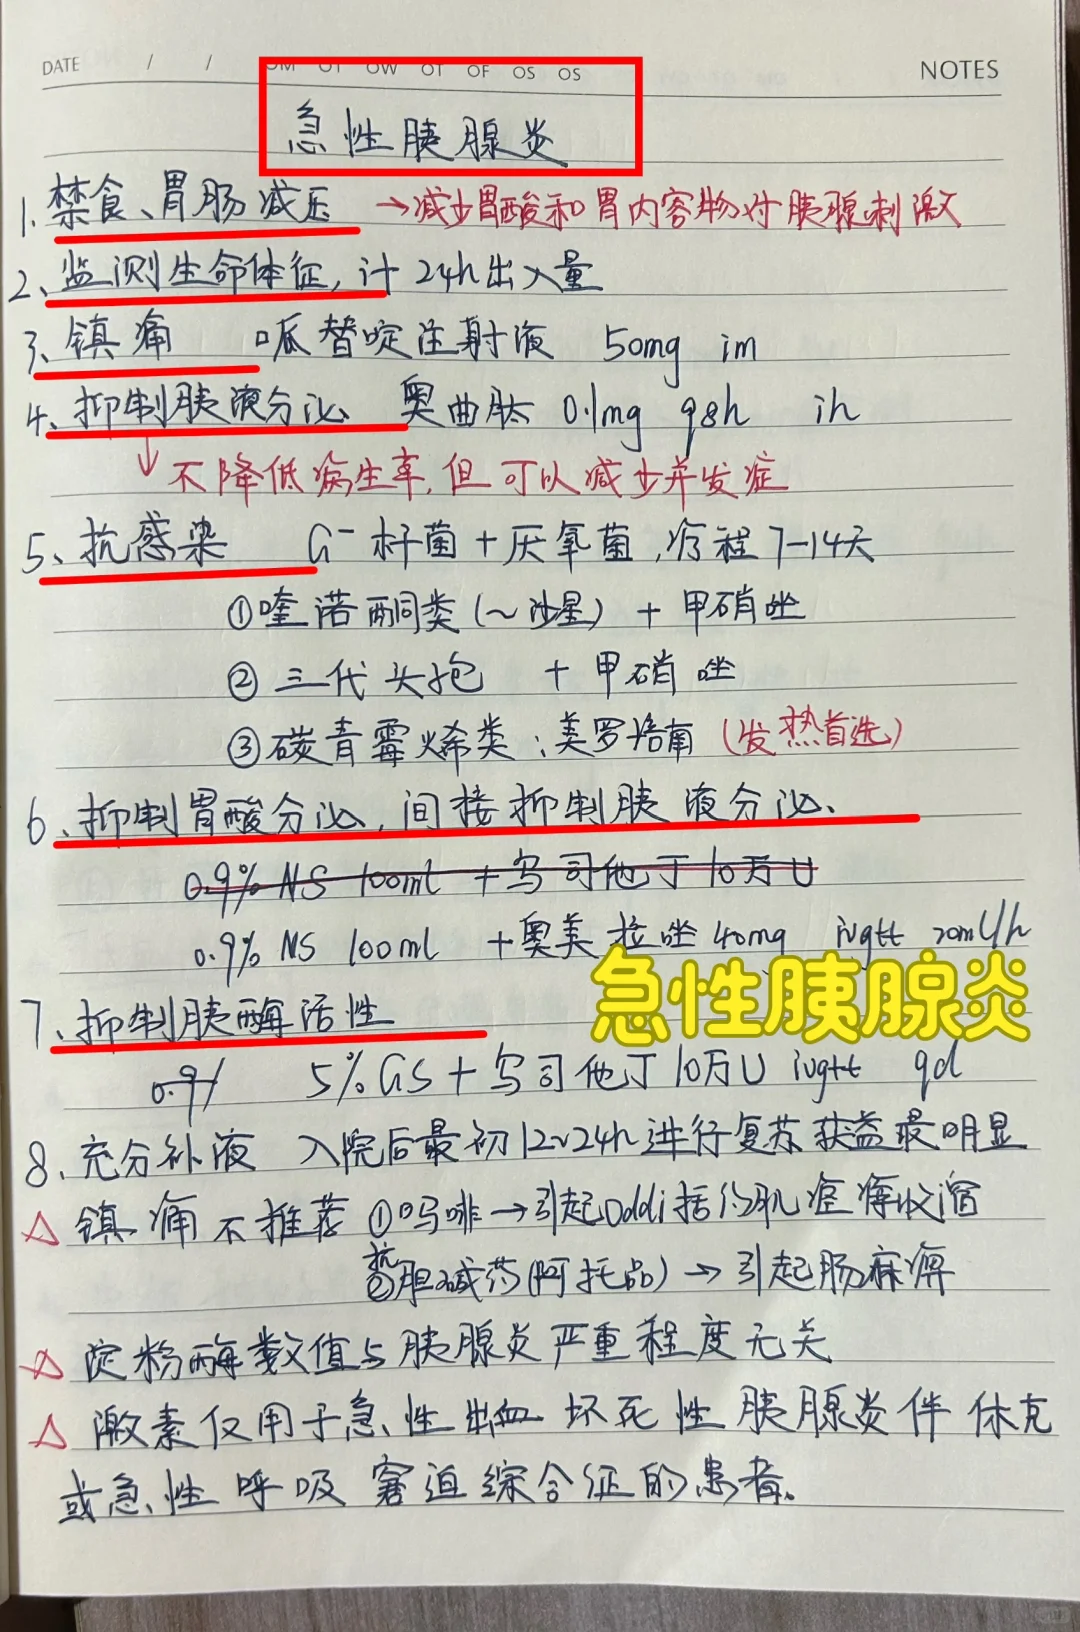 DATE / / OM OT OW OT OF OS OS NOTES
急性胰腺炎
1.禁食、胃肠减压 →减少胃酸和胃内容物对胰腺刺激
2、监测生命体征,计24h出入量
3、镇痛 哌替啶注射液 50mg im
4、抑制胰液分泌、 奥曲肽 0.1mg q8h ih
↓不降低病生率,但可以减少并发症
5、抗感染 G⁻杆菌+厌氧菌,疗程7-14天
①喹诺酮类(~沙星)+甲硝唑
②三代头孢 +甲硝唑
③碳青霉烯类:美罗培南(发热首选)
6、抑制胃酸分泌,间接抑制胰液分泌、
0.9% NS 100ml +乌司他丁10万U
0.9% NS 100ml +奥美拉唑40mg ivgtt 20ml/h
急性胰腺炎
7、抑制胰酶活性
0.9/ 5%GS+乌司他丁10万U ivgtt qd
8、充分补液 入院后最初12~24h进行复苏获益最明显
△镇痛不推荐①吗啡→引起Oddi括约肌痉挛收缩
②抗胆碱药(阿托品)→引起肠麻痹
△淀粉酶数值与胰腺炎严重程度无关
△激素仅用于急性出血坏死性胰腺炎伴休克
或急性呼吸窘迫综合征的患者。